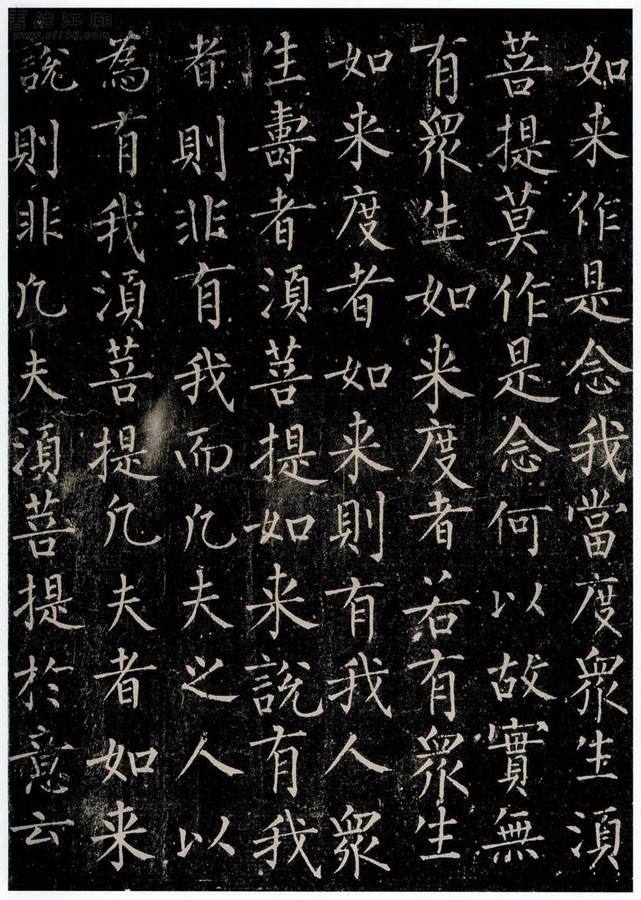 如来作是念我當度眾生湏
菩提莫作是念何以故實無
有眾生如来度者若有眾生
如来度者如来則有我人眾
生壽者湏菩提如来說有我
者則非有我而凢夫之人以
為有我湏菩提凢夫者如来
說則非凢夫湏菩提於意云